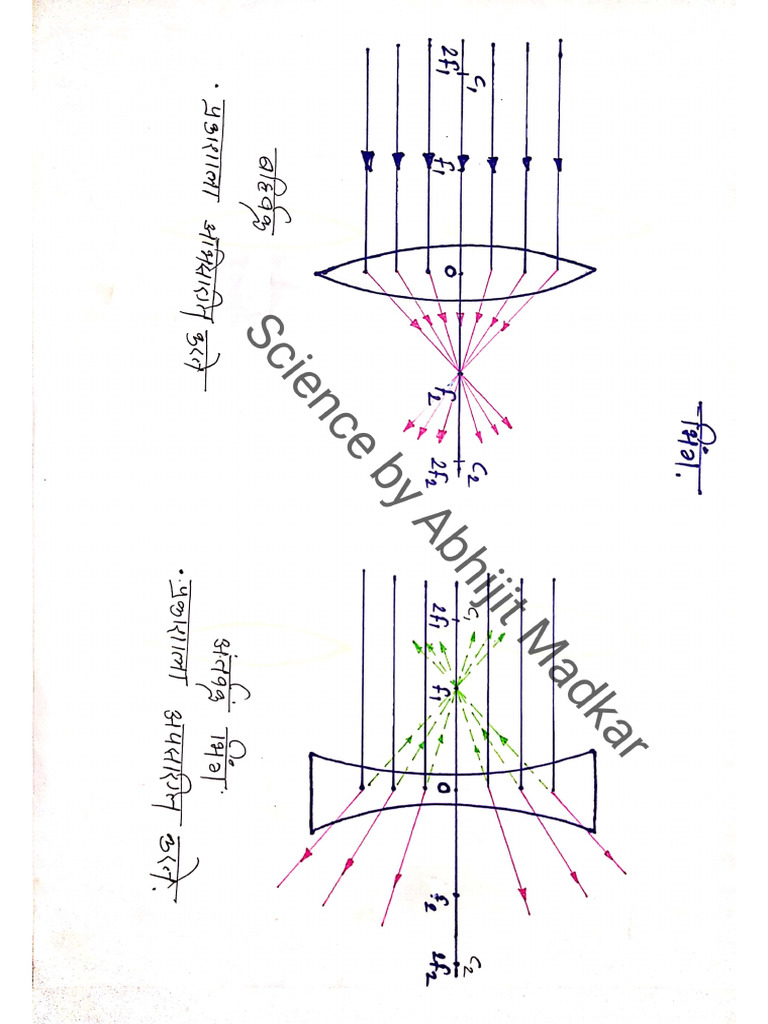 भिंग.
C₁ C₂
2f₁ f₁ O f₂ 2f₂
बहिर्वक्र
• प्रकाशाला अभिसारीत करते
C₁ C₂
2f₁ f₁ O f₂ 2f₂
अंतर्वक्र भिंग
• प्रकाशाला अपसारीत करते.
Science by Abhijit Madkar